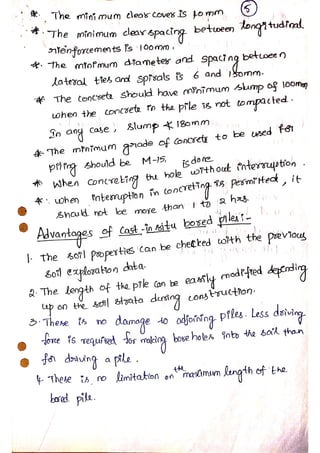 * The minimum clear cover is 40mm
5
* The minimum clear spacing between longitudinal
reinforcements is 100mm.
* The minimum diameter and spacing between
lateral ties and spirals is 6 and 150mm.
* The concrete should have minimum slump of 100mm
when the concrete in the pile is not compacted.
In any case, slump ≮ 180mm
* The minimum grade of concrete to be used for
piling should be M-15. is done
* When concreting the hole without interruption.
* when interruption in concreting is permitted, it
should not be more than 1 to 2 hrs.
Advantages of Cast-in situ bored piles:-
1. The soil properties can be checked with the previous
soil exploration data.
2. The length of the pile can be easily modified depending
up on the soil strata during construction.
3. There is no damage to adjoining piles. Less driving
force is required for making bore holes into the soil than
for driving a pile.
4. There is no limitation on the maximum length of the
bored pile.